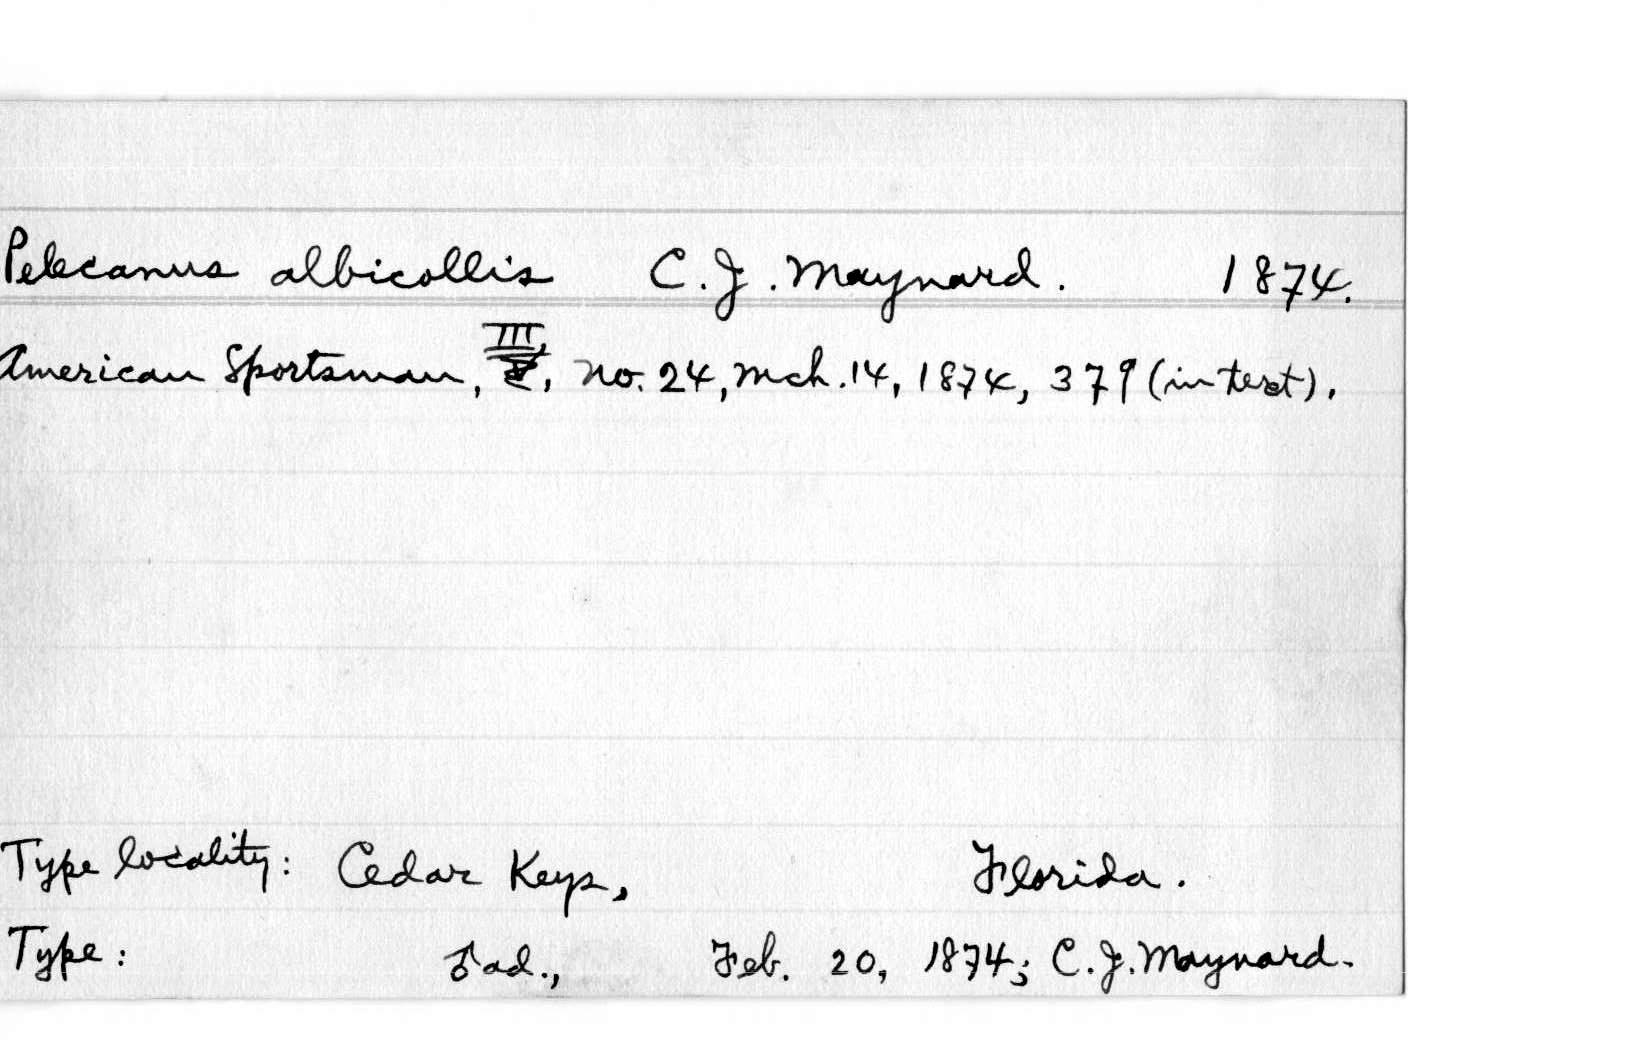 Pelecanus albicollis C. J. Maynard. 1874.
American Sportsman, III, no. 24, mch. 14, 1874, 379 (in text).
Type locality: Cedar Keys, Florida.
Type: ♂ ad., Feb. 20, 1874; C. J. Maynard.